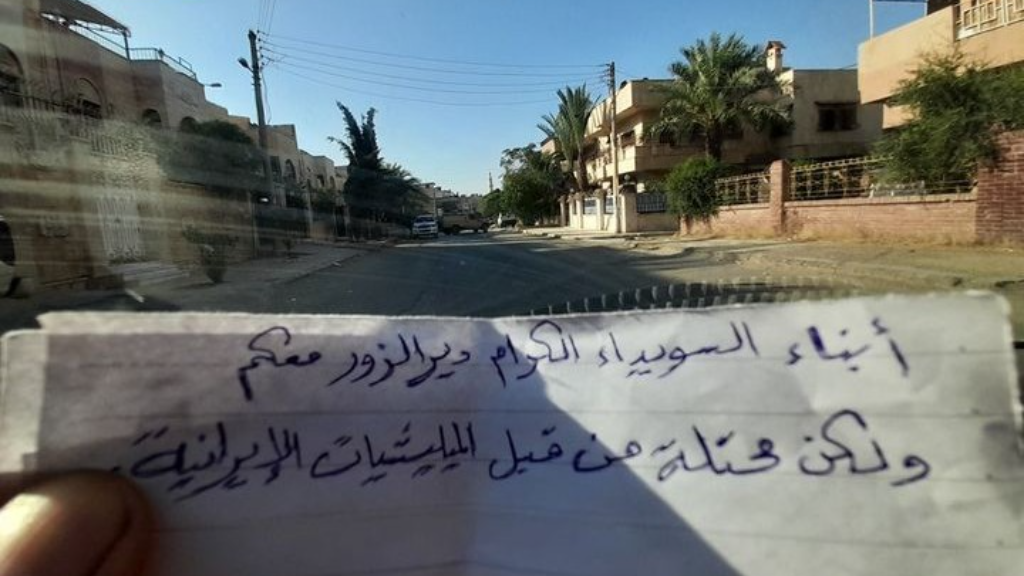 أبناء السويداء الكرام ديرالزور معكم
ولكن محتلة من قبل الميليشيات الإيرانية.